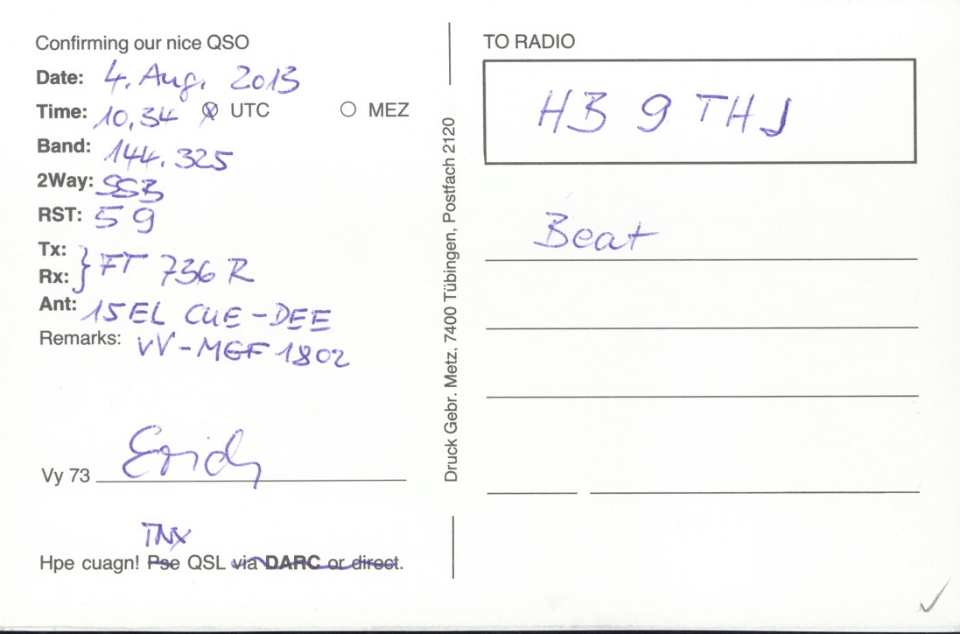 Confirming our nice QSO
Date: 4. Aug. 2013
Time: 10,34 UTC MEZ
Band: 144.325
2Way: SSB
RST: 59
Tx:
Rx: } FT 736 R
Ant: 15EL CUE-DEE
Remarks: VV-MGF 1802
Vy 73 Erich
TNX
Hpe cuagn! Pse QSL via DARC or direct.
Druck Gebr. Metz, 7400 Tübingen, Postfach 2120
TO RADIO
HB 9 THJ
Beat